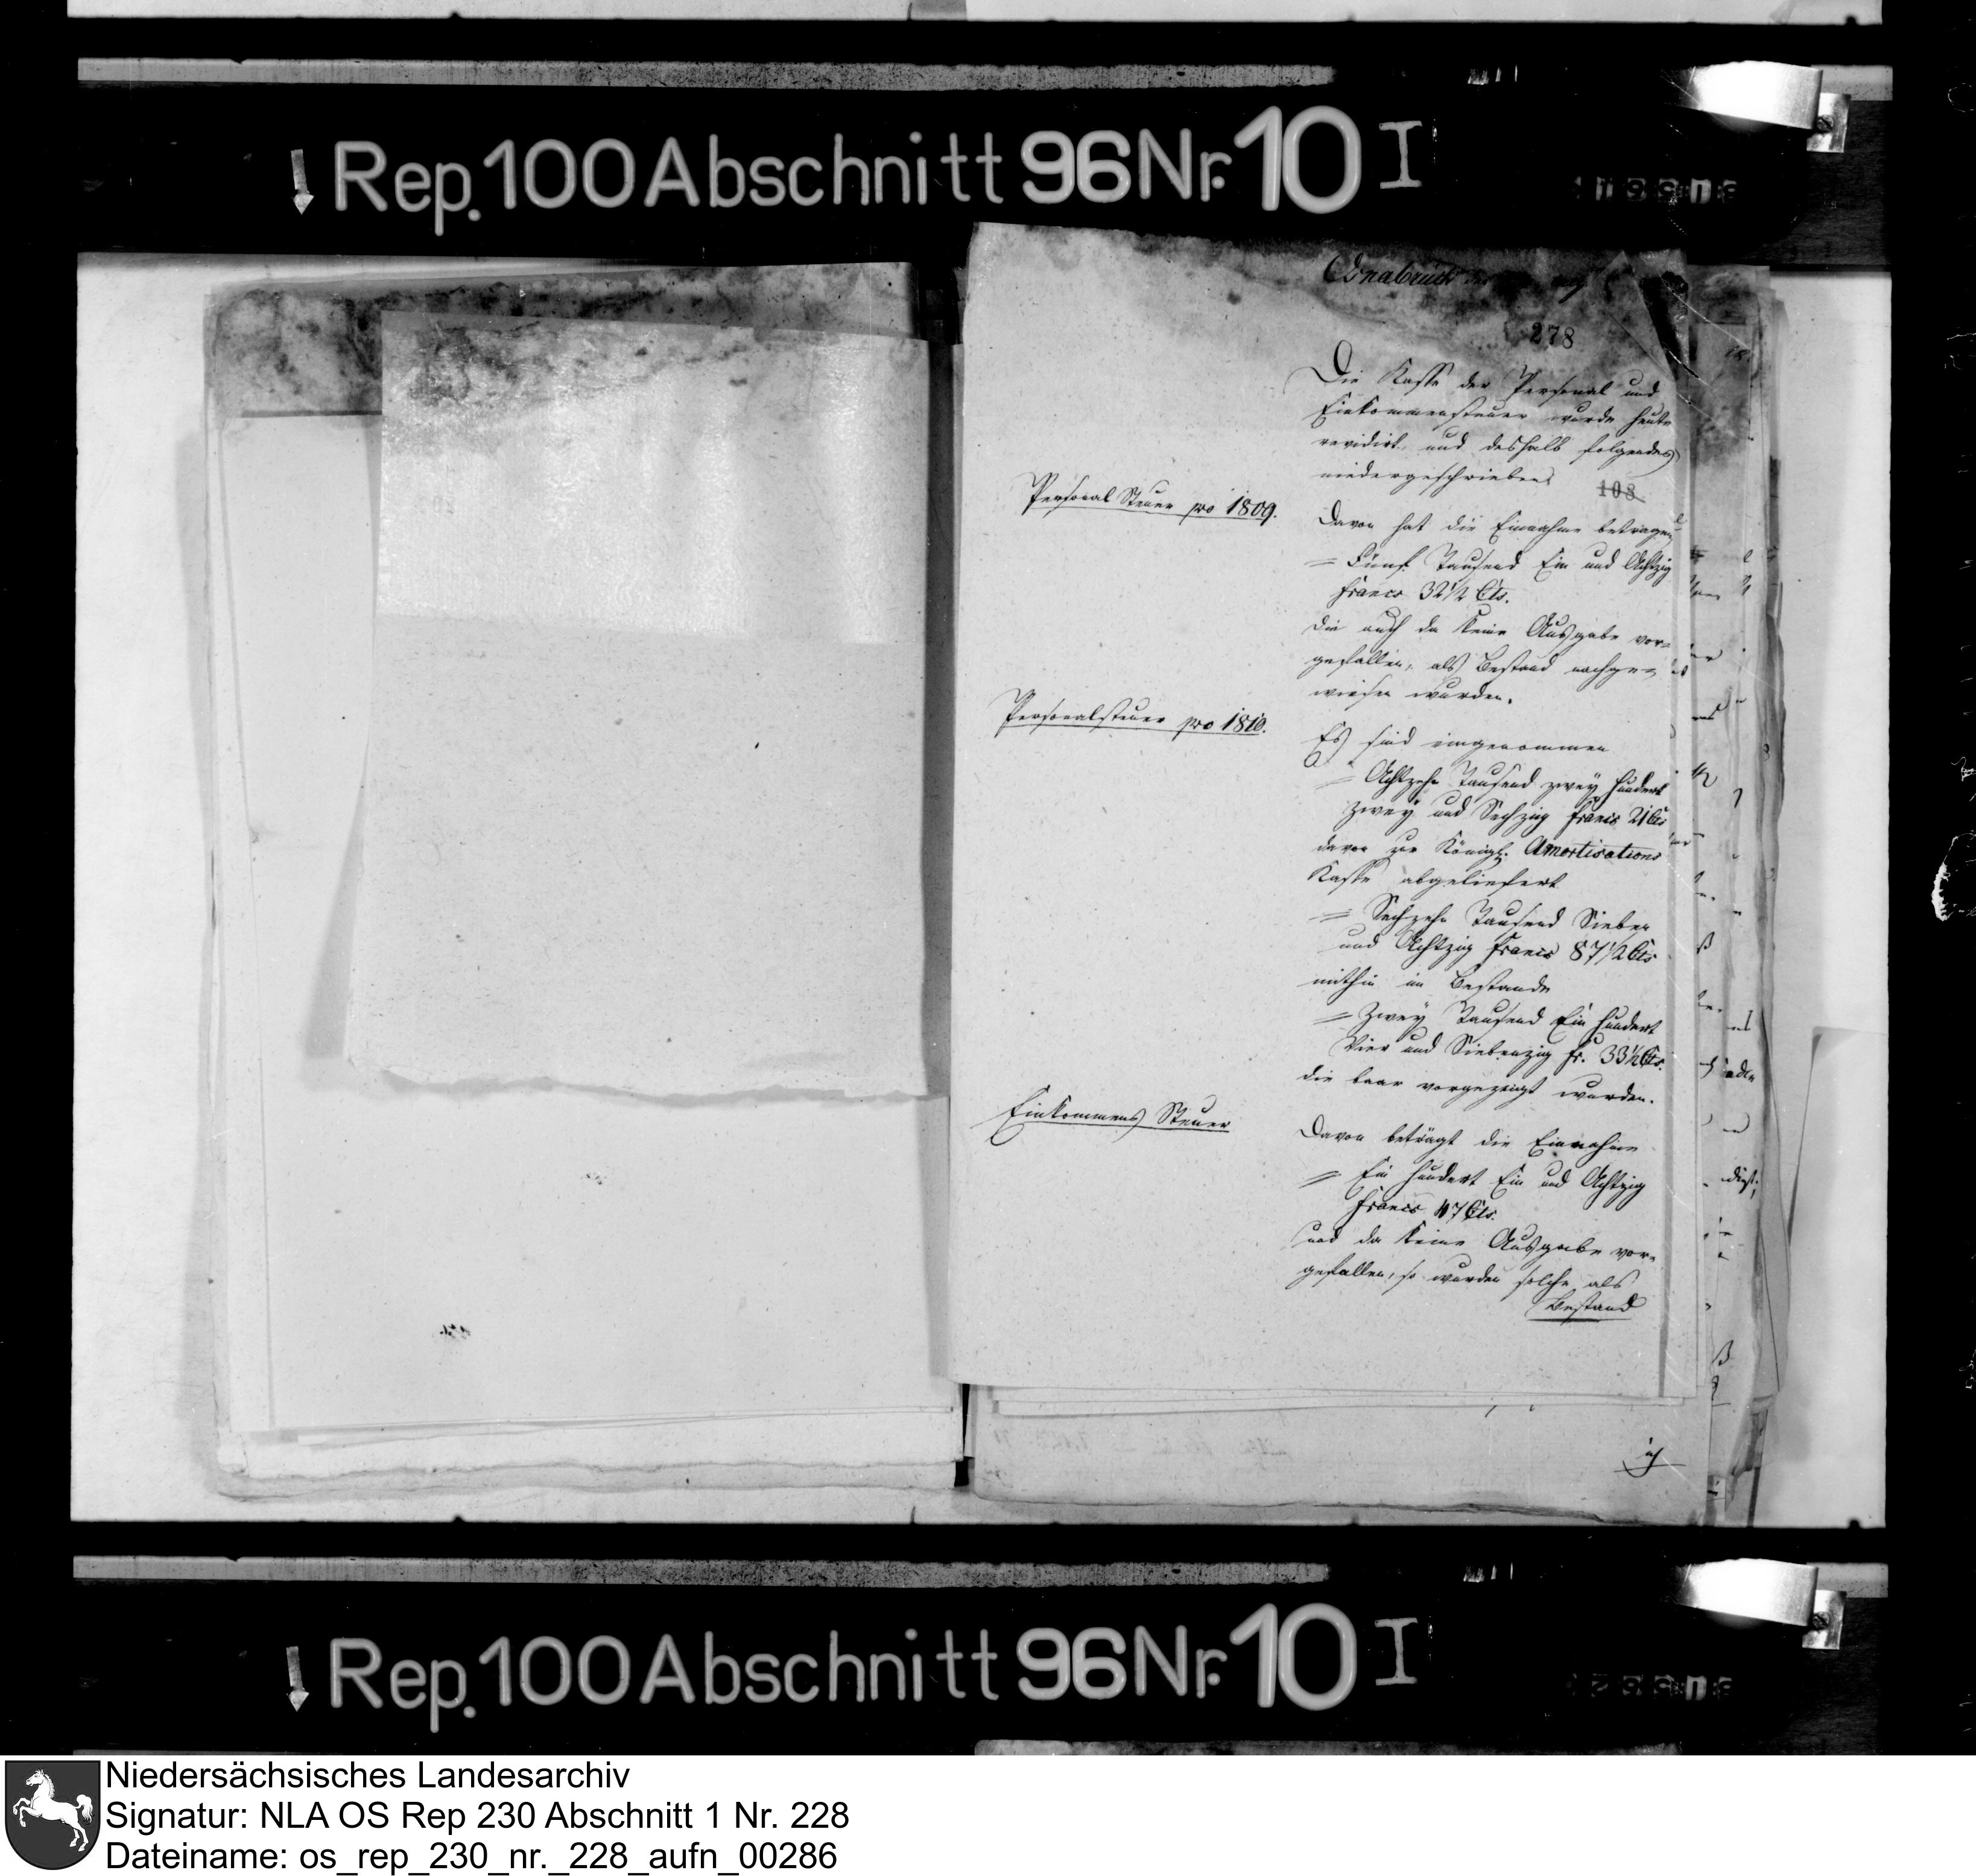 Rep. 100 Abschnitt 96 Nr. 10 I
Osnabrück
278
Die Kasse der Personal und
Einkommensteuer wurde heute
revidirt, und deshalb folgendes
niedergeschrieben
108
Personal Steuer pro 1809.
Davon hat die Einnahme betragen
= Fünf Tausend Ein und Achtzig
Francs 32 1/2 Cts.
die auch da keine Ausgabe vor-
gefallen, als Bestand nachge-
wiesen wurden.
Personalsteuer pro 1810.
Es sind eingenommen
= Achtzehn Tausend zwey hundert
zwey und Sechzig Francs 21 Cts
davon zur Königl. Amortisations
Kasse abgeliefert
= Sechzehn Tausend Sieben
und Achtzig Francs 87 1/2 Cts
mithin im Bestande
= Zwey Tausend Ein hundert
Vier und Siebenzig fr. 33 1/2 Cts.
die baar vorgezeigt wurden.
Einkommens Steuer
Davon beträgt die Einnahme
= Ein hundert Ein und Achtzig
Francs 47 Cts.
und da keine Ausgabe vor-
gefallen, so wurden solche als
Bestand
Rep. 100 Abschnitt 96 Nr. 10 I
Niedersächsisches Landesarchiv
Signatur: NLA OS Rep 230 Abschnitt 1 Nr. 228
Dateiname: os_rep_230_nr._228_aufn_00286